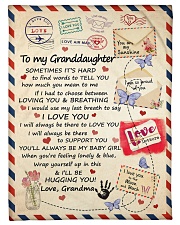 LOVE
LOVE AIR MAIL
To my Granddaughter
SOMETIMES IT'S HARD
to find words to TELL YOU
how much you mean to me
If I had to choose between
LOVING YOU & BREATHING
I would use my last breath to say
I LOVE YOU
I will always be there to LOVE YOU
I will always be there
to SUPPORT YOU
YOU'LL ALWAYS BE MY BABY GIRL
When you're feeling lonely & blue,
Wrap yourself up in this
& I'LL be
HUGGING YOU!
Love, Grandma
You are my
Sunshine
Love